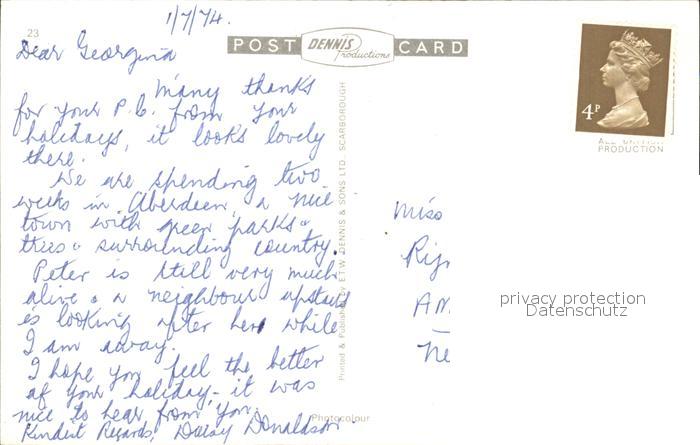 1/7/74.
23
POST DENNIS Productions CARD
Dear Georgina
Many thanks
for your P.C. from your
holidays, it looks lovely
there.
We are spending two
weeks in Aberdeen, a nice
town with green parks &
trees & surrounding country.
Peter is still very much
alive & a neighbour upstairs
is looking after her while
I am away.
I hope you feel the better
of your holiday, - it was
nice to hear from you.
Kindest Regards, Daisy Donaldson.
Printed & Published by E.T.W. DENNIS & SONS LTD. SCARBOROUGH
Photocolour
4P
ALL BRITISH
PRODUCTION
Miss
privacy protection
Datenschutz